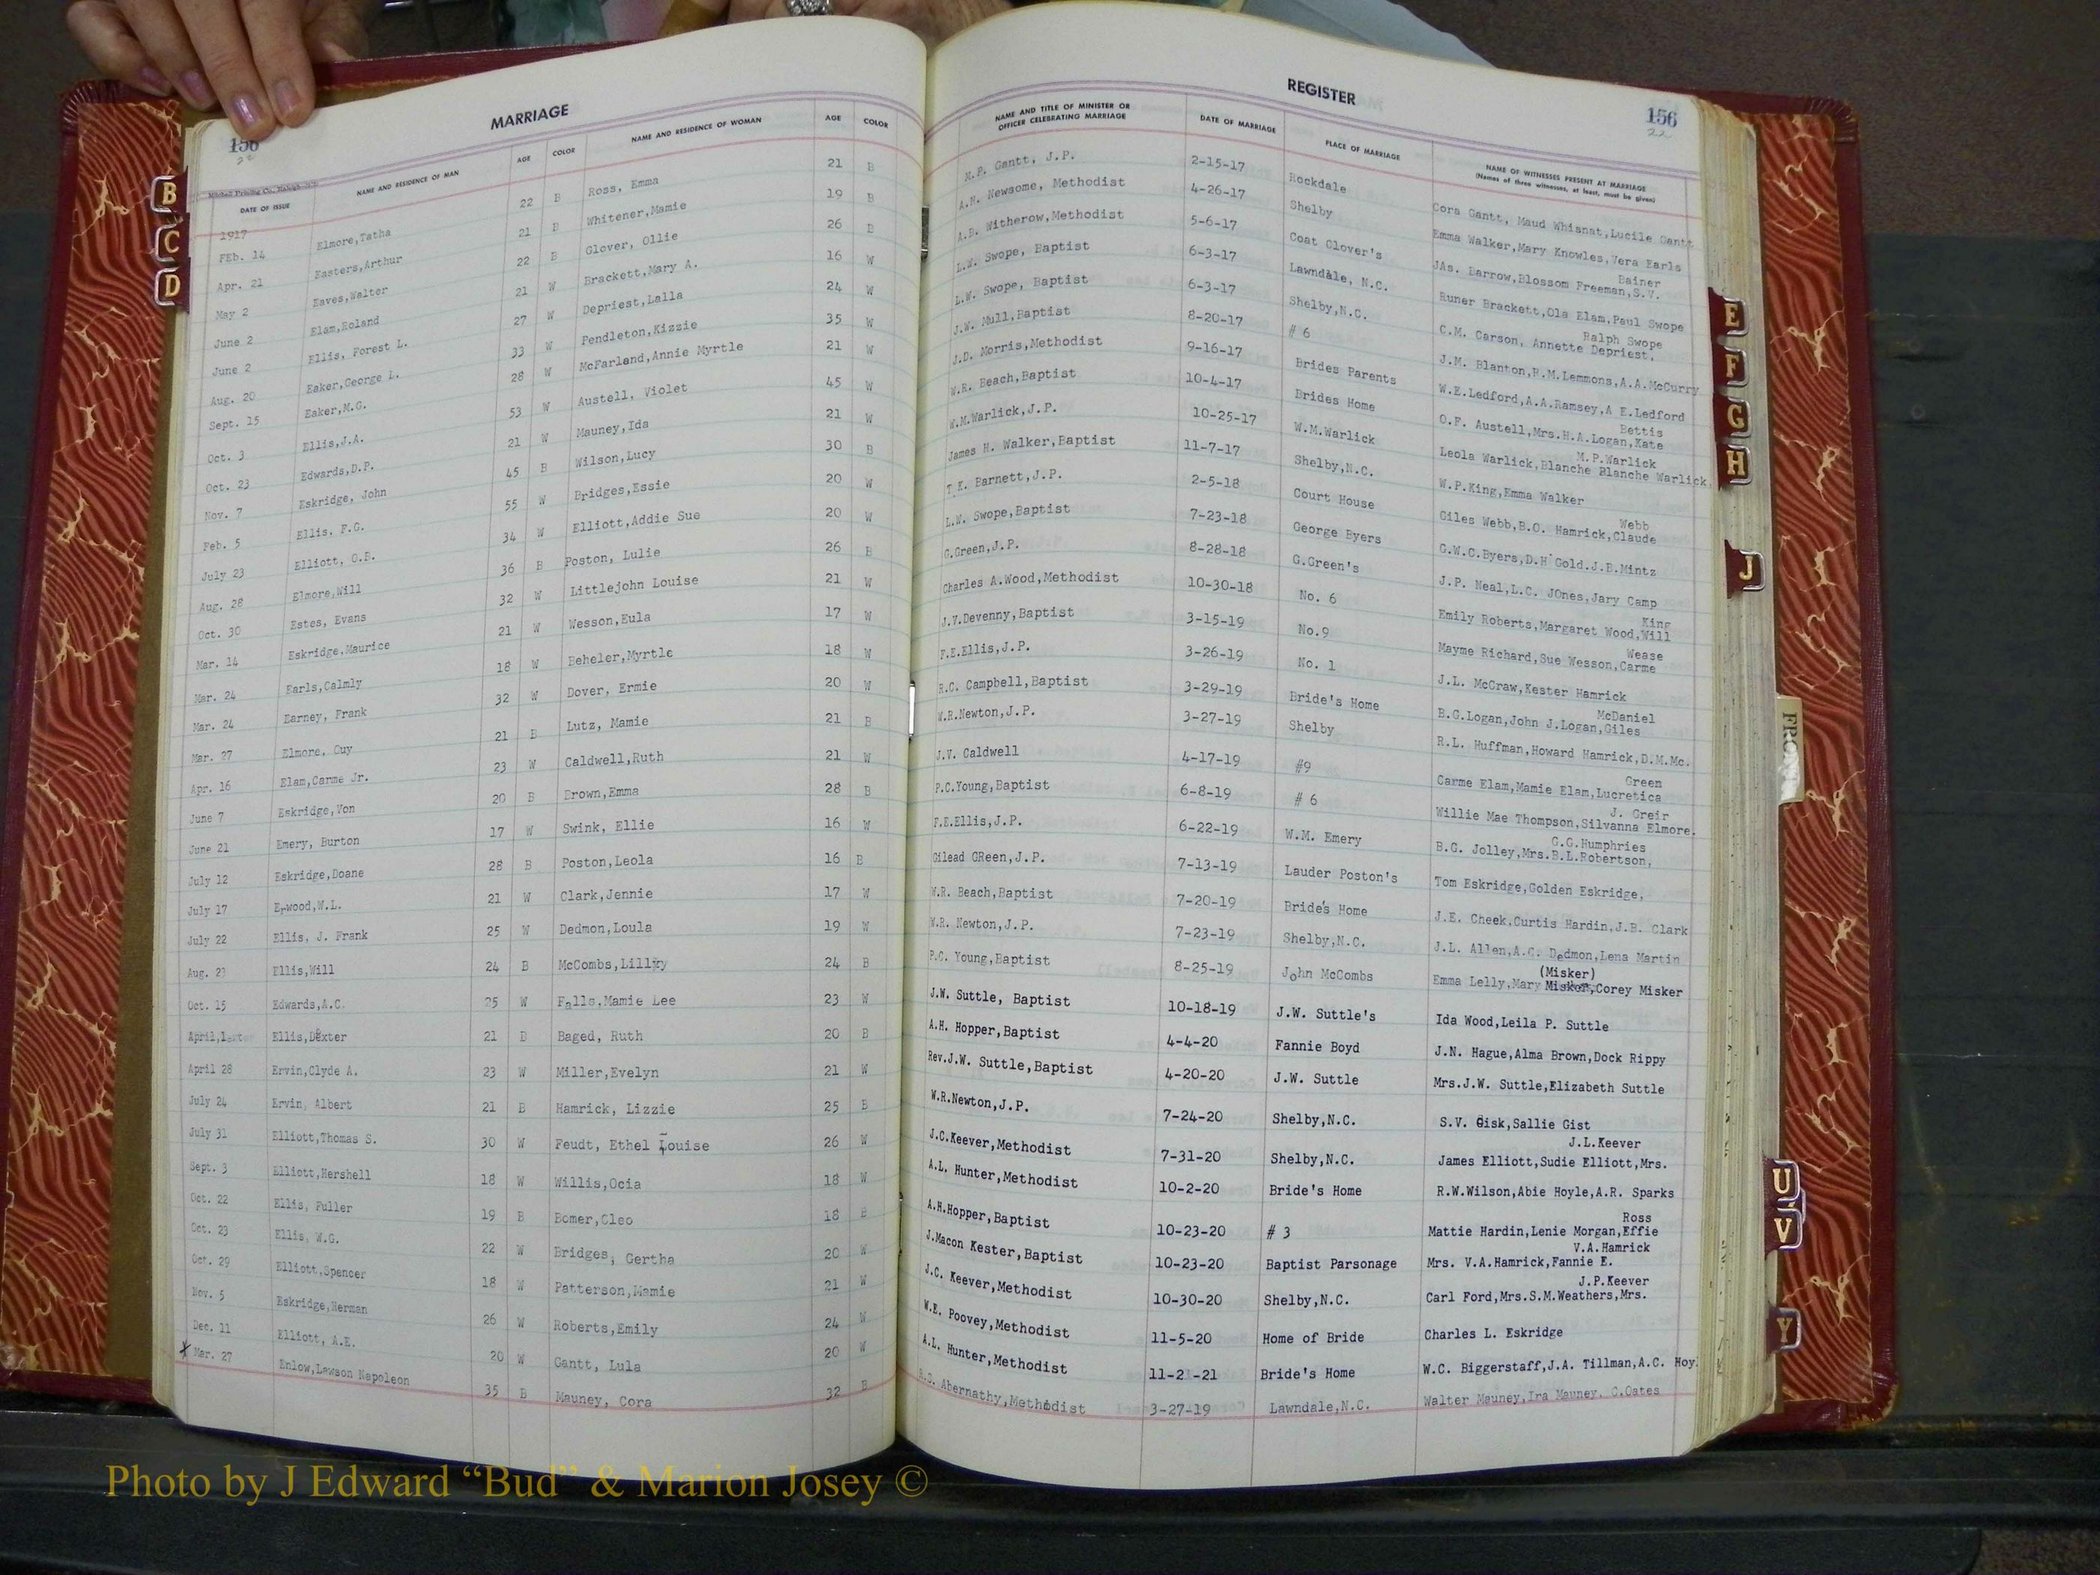 MARRIAGE
156
22
Mitchell Printing Co., Raleigh
DATE OF ISSUE NAME AND RESIDENCE OF MAN AGE COLOR NAME AND RESIDENCE OF WOMAN AGE COLOR
1917
FEb. 14 Elmore,Tatha 22 B Ross, Emma 21 B
Apr. 21 Easters,Arthur 21 B Whitener,Mamie 19 B
May 2 Eaves,Walter 22 B Glover, Ollie 26 B
June 2 Elam,Roland 21 W Brackett,Mary A. 16 W
June 2 Ellis, Forest L. 27 W Depriest,Lalla 24 W
Aug. 20 Eaker,George L. 33 W Pendleton,Kizzie 35 W
Sept. 15 Eaker,M.G. 28 W McFarland,Annie Myrtle 21 W
Oct. 3 Ellis,J.A. 53 W Austell, Violet 45 W
Oct. 23 Edwards,D.P. 21 W Mauney,Ida 21 W
Nov. 7 Eskridge, John 45 B Wilson,Lucy 30 B
Feb. 5 Ellis, F.G. 55 W Bridges,Essie 20 W
July 23 Elliott, G.B. 34 W Elliott,Addie Sue 20 W
Aug. 28 Elmore,Will 36 B Poston, Lulie 26 B
Oct. 30 Estes, Evans 32 W Littlejohn Louise 21 W
Mar. 14 Eskridge,Maurice 21 W Wesson,Eula 17 W
Mar. 24 Earls,Calmly 18 W Beheler,Myrtle 18 W
Mar. 24 Earney, Frank 32 W Dover, Ermie 20 W
Mar. 27 Elmore, Guy 21 B Lutz, Mamie 21 B
Apr. 16 Elam,Carme Jr. 23 W Caldwell,Ruth 21 W
June 7 Eskridge,Von 20 B Brown,Emma 28 B
June 21 Emery, Burton 17 W Swink, Ellie 16 W
July 12 Eskridge,Doane 28 B Poston,Leola 16 B
July 17 Erwood,W.L. 21 W Clark,Jennie 17 W
July 22 Ellis, J. Frank 25 W Dedmon,Loula 19 W
Aug. 23 Ellis,Will 24 B McCombs,Lilly 24 B
Oct. 15 Edwards,A.C. 25 W Falls,Mamie Lee 23 W
April, Ellis,Dexter 21 B Baged, Ruth 20 B
April 28 Ervin,Clyde A. 23 W Miller,Evelyn 21 W
July 24 Ervin, Albert 21 B Hamrick, Lizzie 25 B
July 31 Elliott,Thomas S. 30 W Feudt, Ethel Louise 26 W
Sept. 3 Elliott,Hershell 18 W Willis,Ocia 18 W
Oct. 22 Ellis, Fuller 19 B Bomer,Cleo 18 B
Oct. 23 Ellis, W.G. 22 W Bridges, Gertha 20 W
Oct. 29 Elliott,Spencer 18 W Patterson,Mamie 21 W
Nov. 5 Eskridge,Herman 26 W Roberts,Emily 24 W
Dec. 11 Elliott, A.E. 20 W Gantt, Lula 20 W
x Mar. 27 Enlow,Lawson Napoleon 35 B Mauney, Cora 32 B
REGISTER
156
22
NAME AND TITLE OF MINISTER OR OFFICER CELEBRATING MARRIAGE DATE OF MARRIAGE PLACE OF MARRIAGE NAME OF WITNESSES PRESENT AT MARRIAGE
(Names of three witnesses, at least, must be given)
M.P. Gantt, J.P. 2-15-17 Rockdale Cora Gantt, Maud Whisnat,Lucile Gantt
A.H. Newsome, Methodist 4-26-17 Shelby Emma Walker,Mary Knowles,Vera Earls
A.B. Witherow,Methodist 5-6-17 Coat Glover's JAs. Darrow,Blossom Freeman,S.V. Bainer
L.W. Swope, Baptist 6-3-17 Lawndale, N.C. Runer Brackett,Ola Elam,Paul Swope
L.W. Swope, Baptist 6-3-17 Shelby,N.C. C.M. Carson, Annette Depriest, Ralph Swope
J.W. Mull,Baptist 8-20-17 # 6 J.M. Blanton,R.M.Lemmons,A.A.McCurry
J.D. Morris,Methodist 9-16-17 Brides Parents W.E.Ledford,A.A.Ramsey,A E.Ledford
W.R. Beach,Baptist 10-4-17 Brides Home O.F. Austell,Mrs.H.A.Logan,Kate Bettis
W.M.Warlick,J.P. 10-25-17 W.M.Warlick Leola Warlick,Blanche Blanche Warlick, M.P.Warlick
James H. Walker,Baptist 11-7-17 Shelby,N.C. W.P.King,Emma Walker
T K. Barnett,J.P. 2-5-18 Court House Giles Webb,B.O. Hamrick,Claude Webb
L.W. Swope,Baptist 7-23-18 George Byers G.W.C.Byers,D.H Gold.J.B.Mintz
G.Green,J.P. 8-28-18 G.Green's J.P. Neal,L.C. JOnes,Jary Camp
Charles A.Wood,Methodist 10-30-18 No. 6 Emily Roberts,Margaret Wood,Will King
J.V.Devenny,Baptist 3-15-19 No.9 Mayme Richard,Sue Wesson,Carme Wease
F.E.Ellis,J.P. 3-26-19 No. 1 J.L. McCraw,Kester Hamrick
R.C. Campbell,Baptist 3-29-19 Bride's Home B.G.Logan,John J.Logan,Giles McDaniel
W.R.Newton,J.P. 3-27-19 Shelby R.L. Huffman,Howard Hamrick,D.M.Mc.
J.V. Caldwell 4-17-19 #9 Carme Elam,Mamie Elam,Lucretica Green
P.C.Young,Baptist 6-8-19 # 6 Willie Mae Thompson,Silvanna Elmore, J. Greir
F.E.Ellis,J.P. 6-22-19 W.M. Emery B.G. Jolley,Mrs.B.L.Robertson, G.G.Humphries
Gilead GReen,J.P. 7-13-19 Lauder Poston's Tom Eskridge,Golden Eskridge,
W.R. Beach,Baptist 7-20-19 Bride's Home J.E. Cheek,Curtis Hardin,J.B. Clark
W.R. Newton,J.P. 7-23-19 Shelby,N.C. J.L. Allen,A.C. Dedmon,Lena Martin
P.C. Young,Baptist 8-25-19 John McCombs Emma Lelly,Mary Misker,Corey Misker (Misker)
J.W. Suttle, Baptist 10-18-19 J.W. Suttle's Ida Wood,Leila P. Suttle
A.H. Hopper,Baptist 4-4-20 Fannie Boyd J.N. Hague,Alma Brown,Dock Rippy
Rev.J.W. Suttle,Baptist 4-20-20 J.W. Suttle Mrs.J.W. Suttle,Elizabeth Suttle
W.R.Newton,J.P. 7-24-20 Shelby,N.C. S.V. Gisk,Sallie Gist
J.C.Keever,Methodist 7-31-20 Shelby,N.C. James Elliott,Sudie Elliott,Mrs. J.L.Keever
A.L. Hunter,Methodist 10-2-20 Bride's Home R.W.Wilson,Abie Hoyle,A.R. Sparks
A.H.Hopper,Baptist 10-23-20 # 3 Mattie Hardin,Lenie Morgan,Effie Ross
J.Macon Kester,Baptist 10-23-20 Baptist Parsonage Mrs. V.A.Hamrick,Fannie E. V.A.Hamrick
J.C. Keever,Methodist 10-30-20 Shelby,N.C. Carl Ford,Mrs.S.M.Weathers,Mrs. J.P.Keever
W.E. Poovey,Methodist 11-5-20 Home of Bride Charles L. Eskridge
A.L. Hunter,Methodist 11-21-21 Bride's Home W.C. Biggerstaff,J.A. Tillman,A.C. Hoy
R.S. Abernathy,Methodist 3-27-19 Lawndale,N.C. Walter Mauney,Ira Mauney, C.Oates
B
C
D
E
F
G
H
J
U
V
Y
FRONT
Photo by J Edward “Bud” & Marion Josey ©